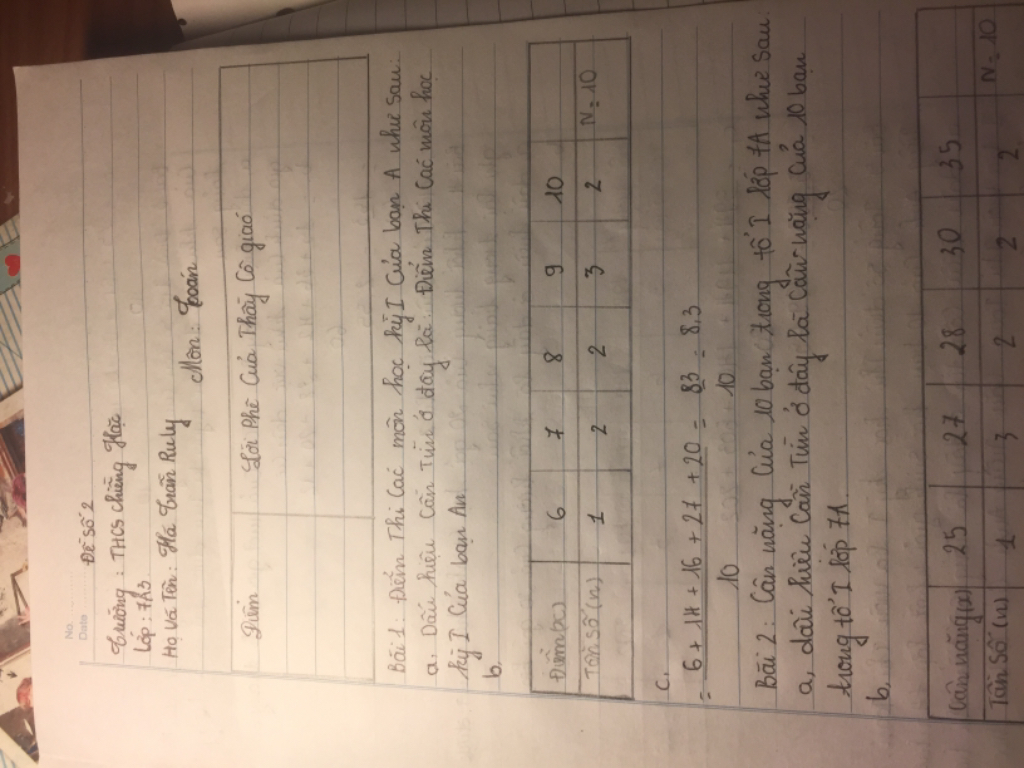 No.
Date
Đề số 2
Trường : THCS Chiềng Hặc
Lớp : 7A3
Họ Và Tên : Hà Trần Ruly
Môn : Toán
Điểm
Lời Phê Của Thầy Cô giaó
Bài 1 : Điểm Thi Các môn học kỳ I Của bạn A như sau :
a. Dấu hiệu Cần Tìm ở đây là : Điểm Thi Các môn học
kỳ I Của bạn An
b.
Điểm(x) 6 7 8 9 10
Tần số (n) 1 2 2 3 2 N = 10
c.
= 6 + 14 + 16 + 27 + 20 = 83 = 8.3
10 10
Bài 2 : Cân nặng Của 10 bạn trong tổ I lớp 7A như sau :
a, dấu hiệu Cần Tìm ở đây là Cân nặng Của 10 bạn
trong tổ I lớp 7A.
b.
Cân nặng(x) 25 27 28 30 35
Tần Số (n) 1 3 2 2 2 N = 10